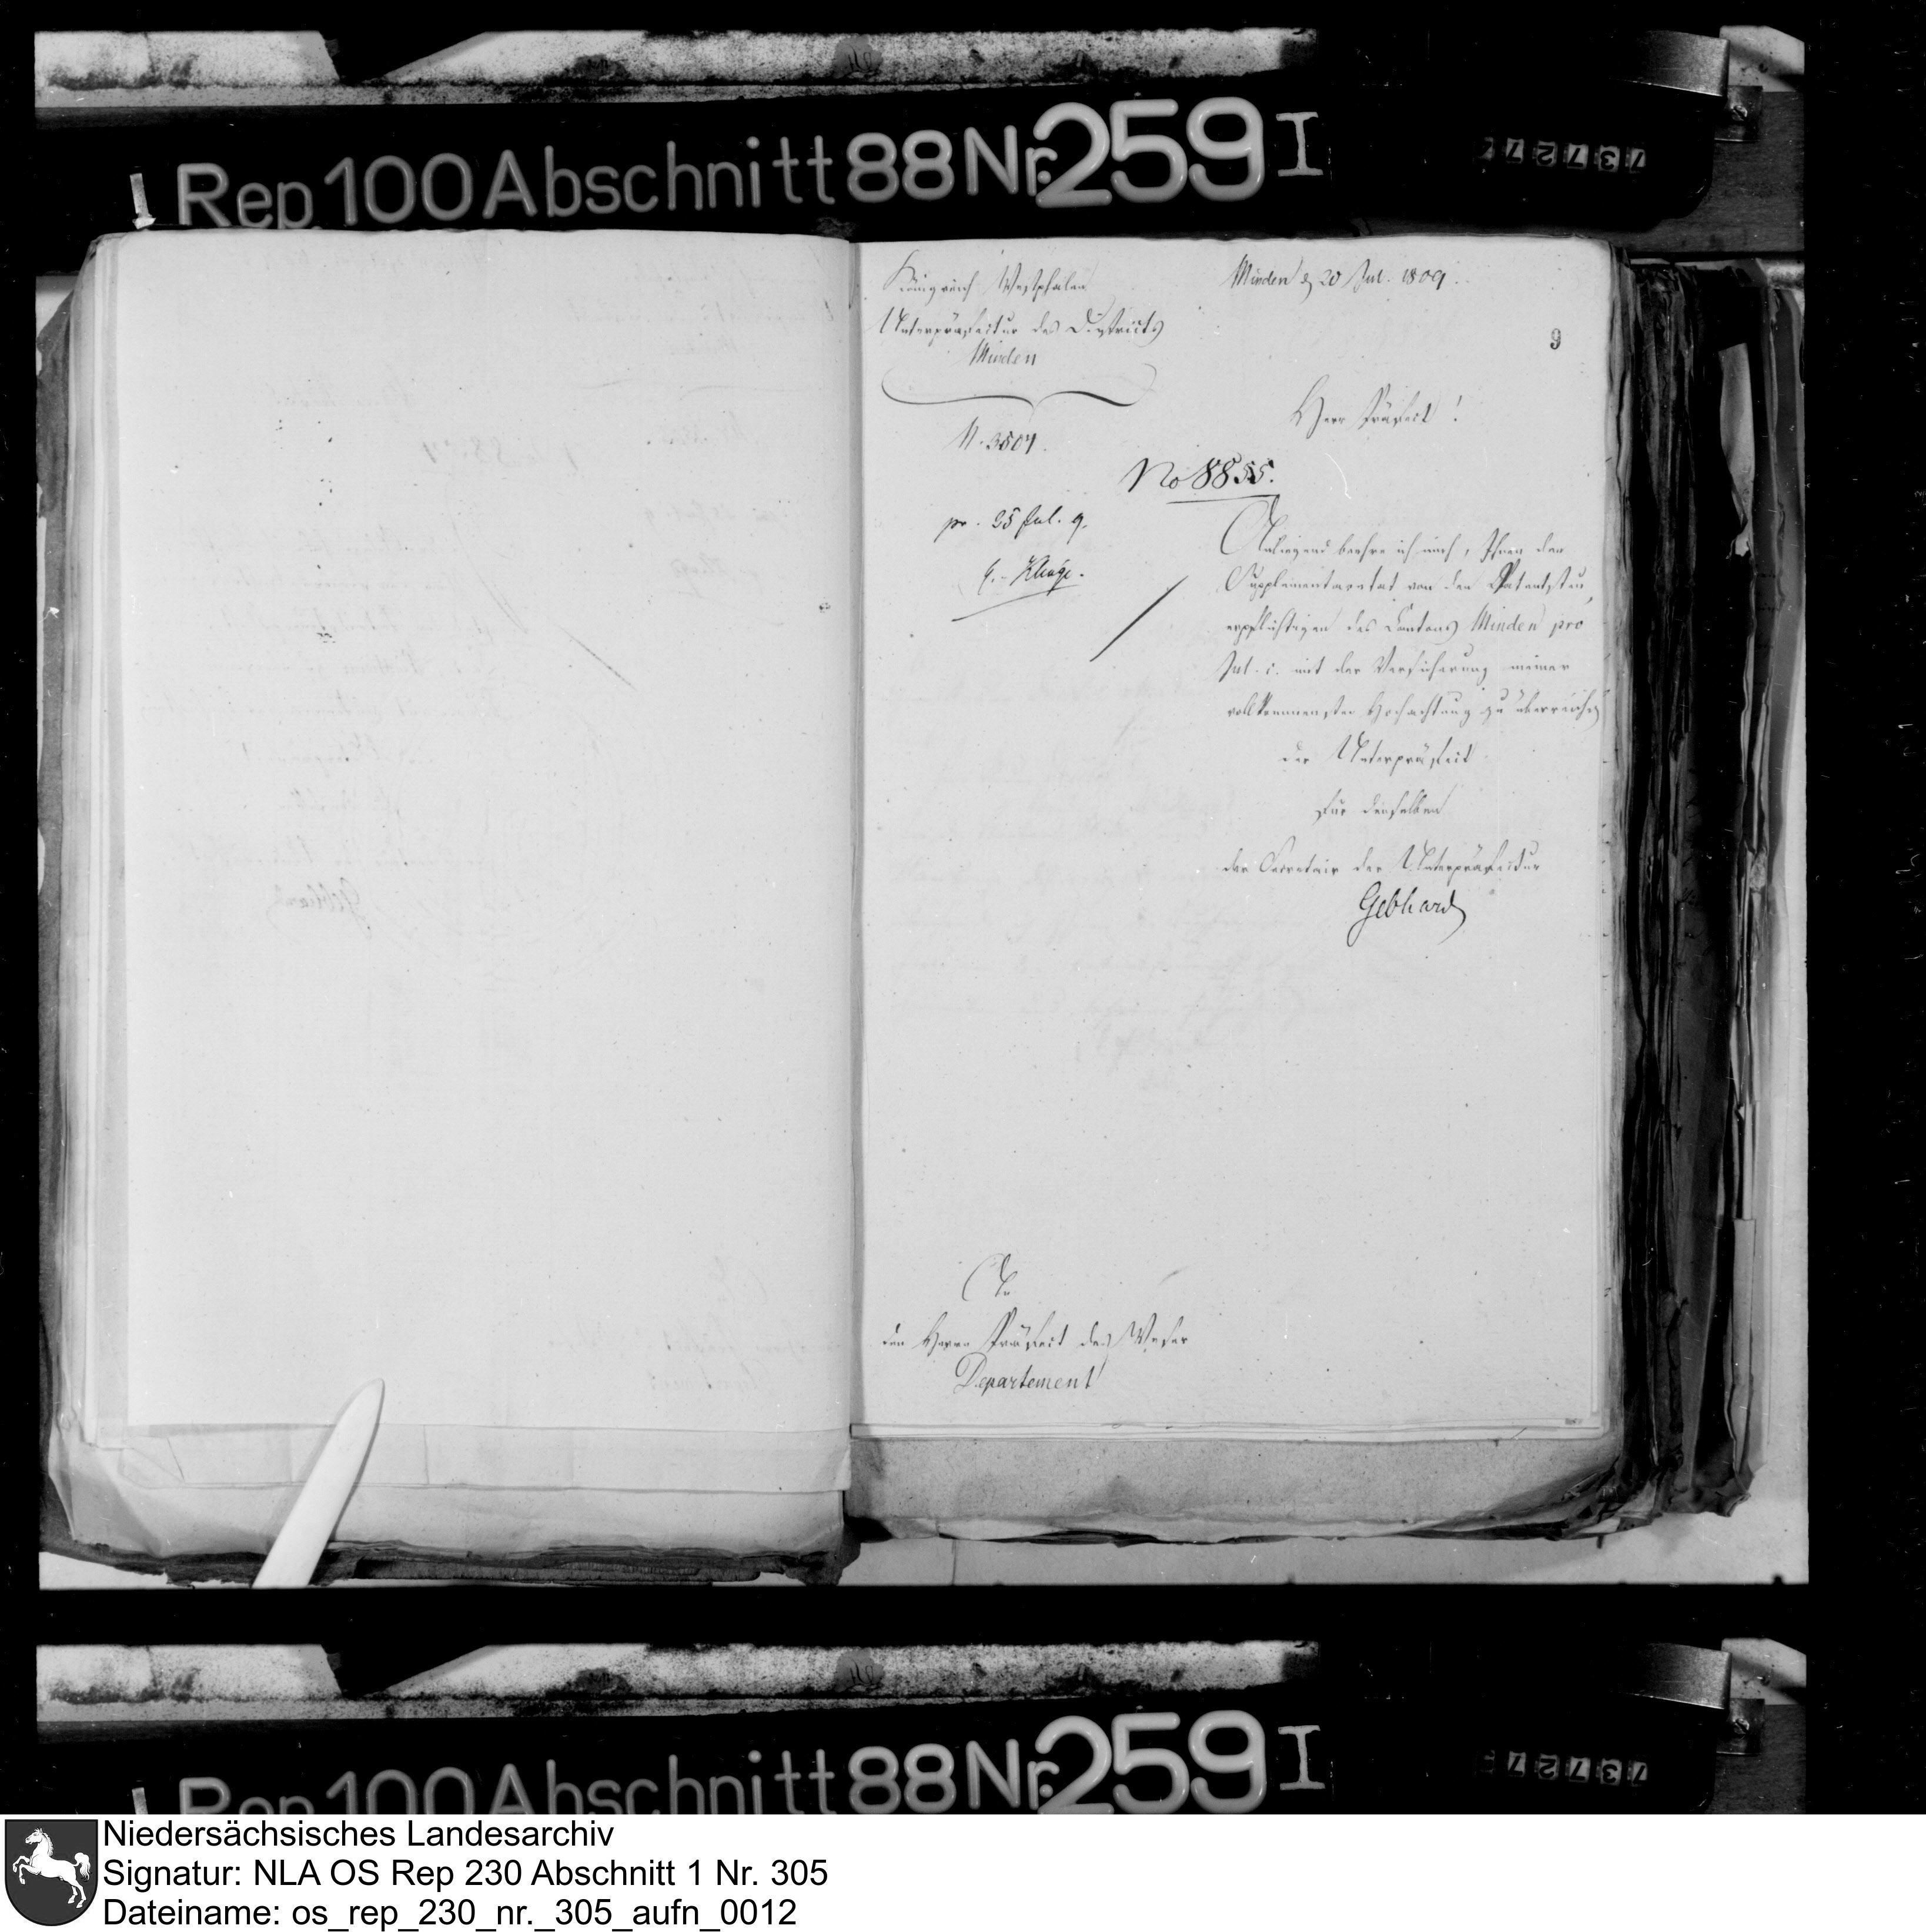 Rep 100 Abschnitt 88 Nr. 259 I
Königreich Westphalen
Unterpräfectur des Districts
Minden
N. 3507.
Minden d 20 Jul. 1809.
9
Herr Präfect!
No 8855.
pr. 25 Jul. 9.
Kluge.
Anliegend beehre ich mich, Ihnen den
Supplementaretat von den Patentsteu
erpflichtigen des Cantons Minden pro
Jul. c. mit der Versicherung meiner
vollkommensten Hochachtung zu überreichen
der Unterpräfect
für denselben
der Secretair der Unterpräfectur
Gebhard
An
den Herrn Präfect des Weser
Departement
Rep 100 Abschnitt 88 Nr. 259 I
Niedersächsisches Landesarchiv
Signatur: NLA OS Rep 230 Abschnitt 1 Nr. 305
Dateiname: os_rep_230_nr._305_aufn_0012